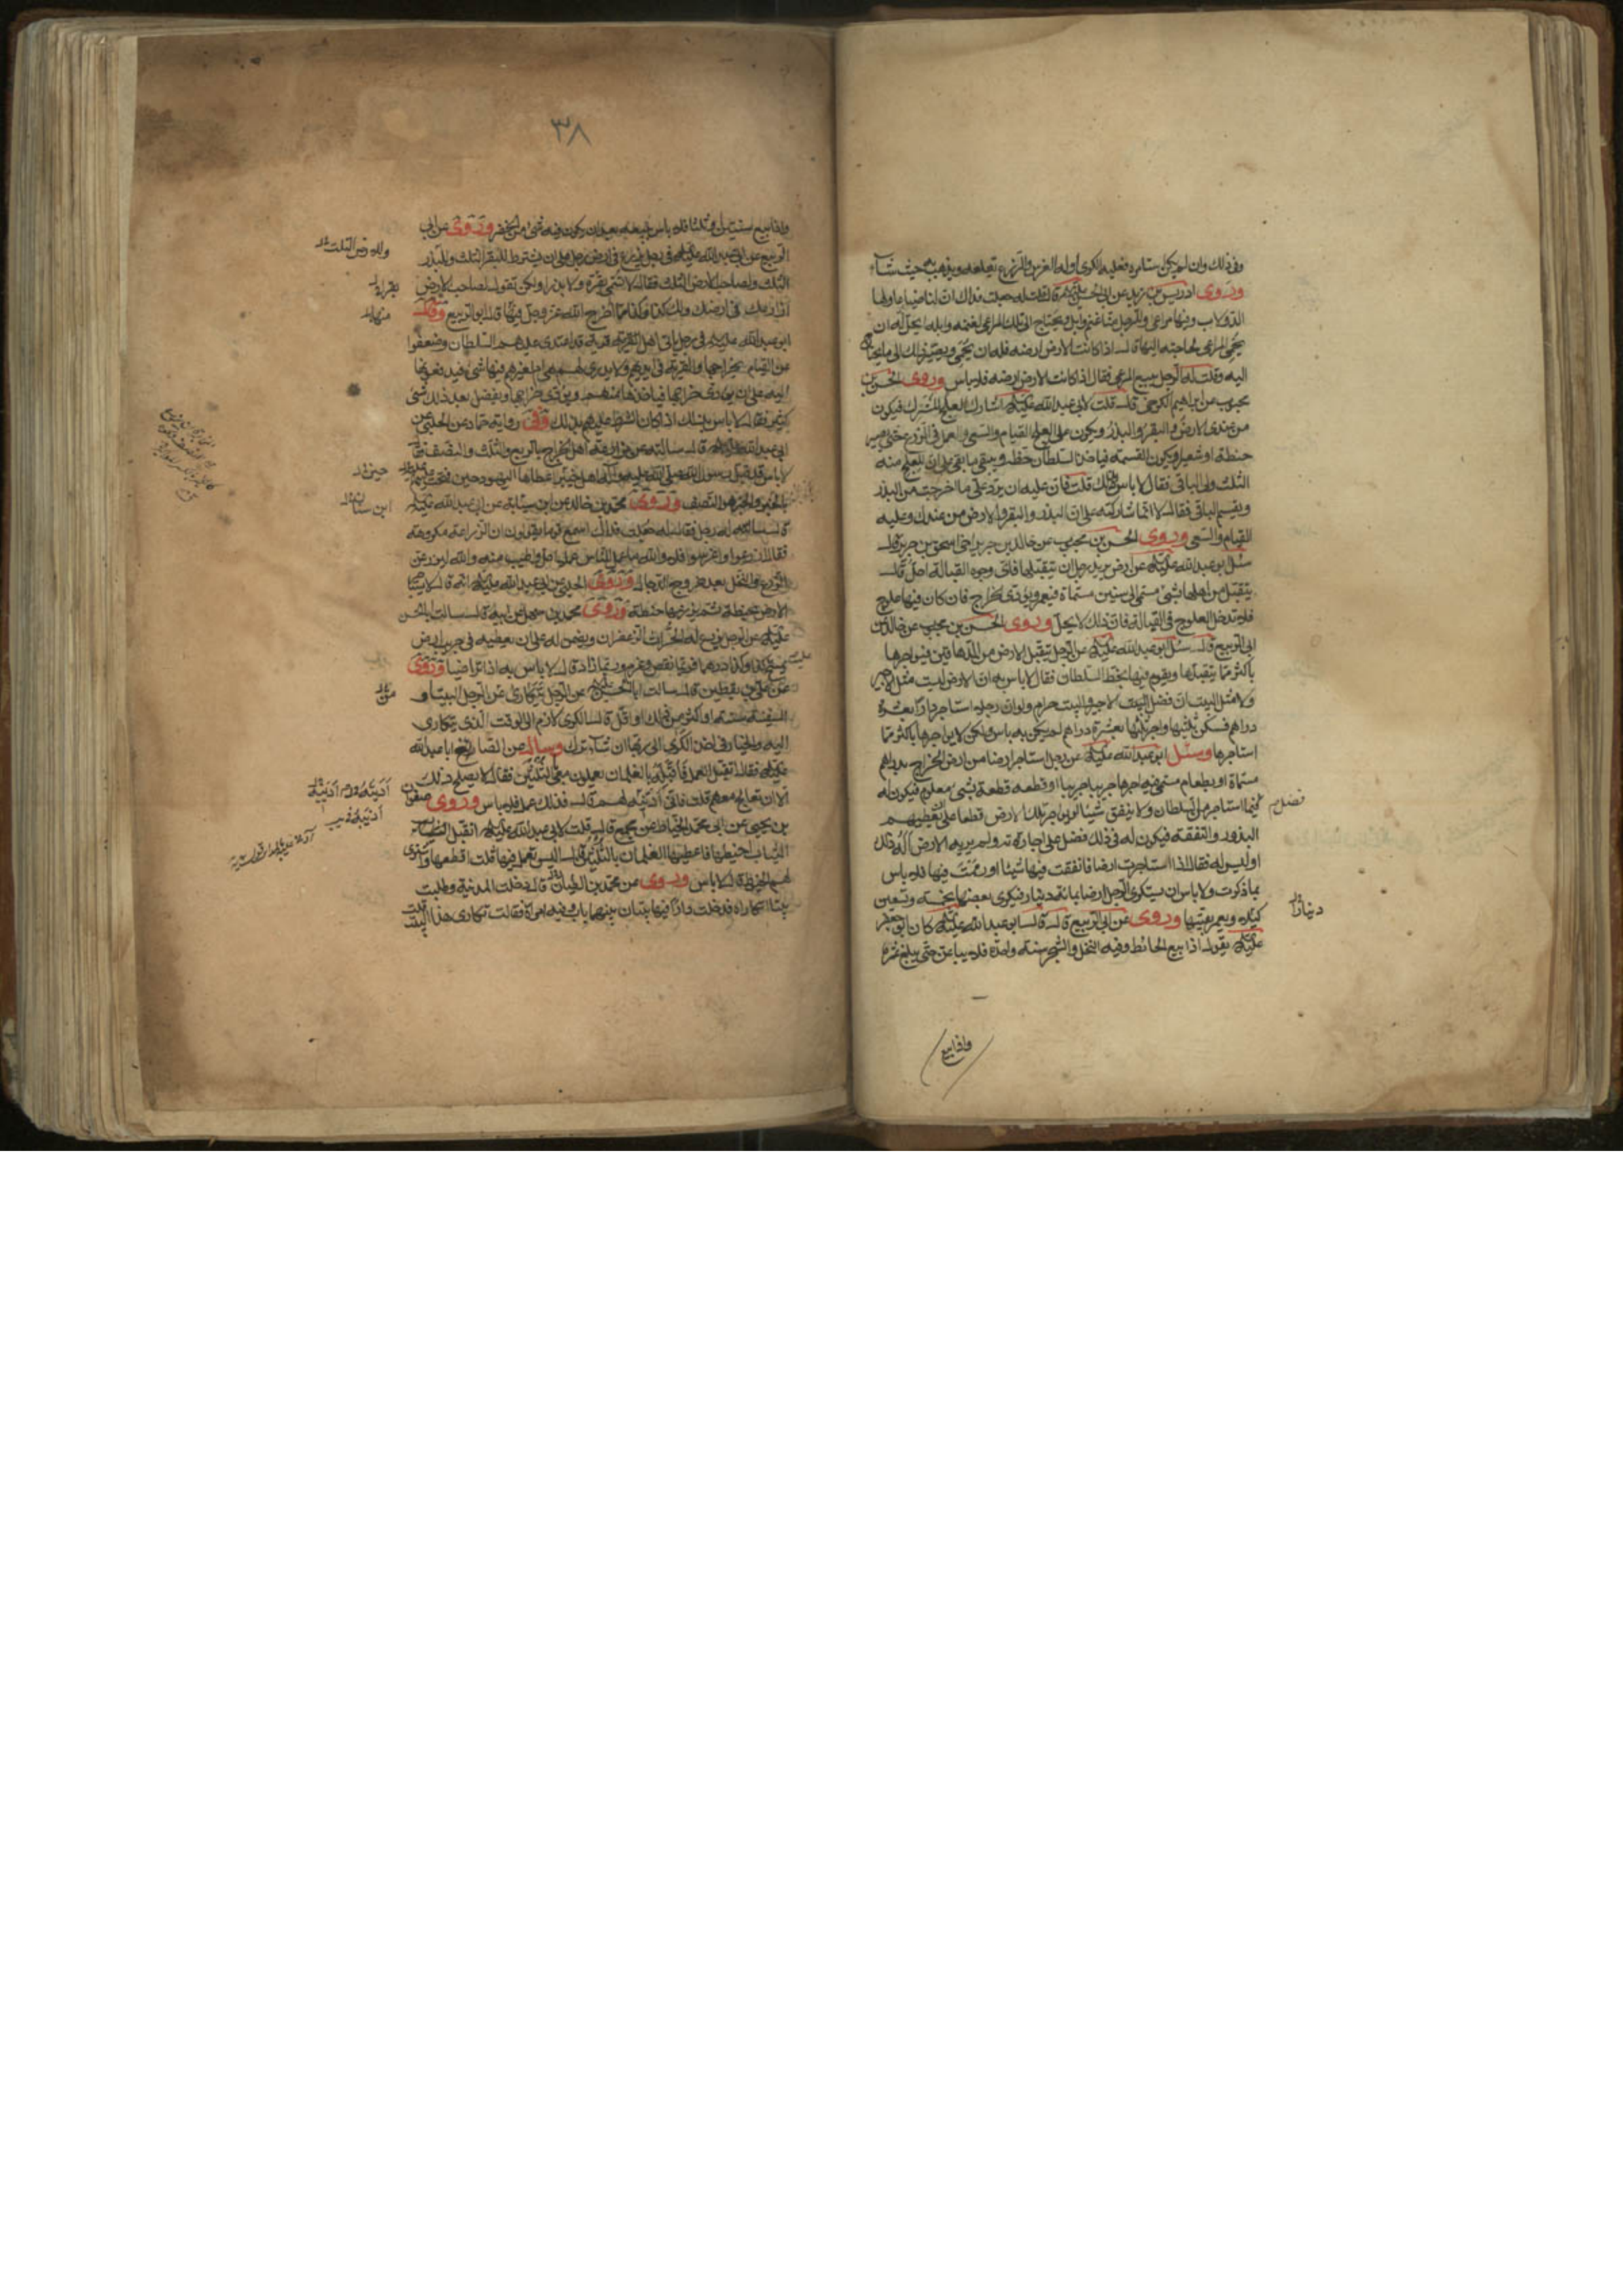 وفى ذلك وان لم يكن استامره فعليه الكرى اوله الغرس والزرع يقلعه ويذهب به حيث شآء
وروى ادريس بن زيد عن ابى الحسن عليه السلم قال قلت له جعلت فداك ان لنا ضياعا ولها
الدولاب وفيها مراعى وللرجل منا غنم وابل ويحتاج الى تلك المراعى لغنمه وابله ايحل له ان
يحمى المراعى لحاجته اليها قال اذا كانت الارض ارضه فله ان يحمى ويصير ذلك الى ما يحتاج
اليه وقلت له الرجل يبيع المراعى فقال اذا كانت الارض ارضه فلا باس وروى الحسن بن
محبوب عن ابراهيم الكرخى قال قلت لابى عبد الله عليه اشارك العلج المشرك فيكون
من عندى الارض والبقر والبذر ويكون على العلج القيام والسعى والعمل فى الزرع حتى يصير
حنطة او شعيرا وتكون القسمة فياخذ السلطان حظه ويبقى ما بقى على ان للعلج منه
الثلث ولى الباقى فقال لا باس بذلك قلت فان عليه ان يرد على ما اخرجت من البذر
ويقسم الباقى فقال لا انما شاركته على ان البذر والبقر والارض من عندك وعليه
القيام والسعى وروى الحسن بن محبوب عن خالد بن جرير اخى اسحق بن جرير قال
سئل ابو عبد الله عليه عن ارض يريد رجل ان يتقبلها فاى وجوه القبالة احل قال
يتقبل من اهلها بشئ مسمى الى سنين مسماة فيعمر ويؤدى الخراج فان كان فيها علوج
فلا تدخل العلوج فى القبالة فان ذلك لا يحل وروى الحسن بن محبوب عن خالد عن
ابى الربيع قال سئل ابو عبد الله عليه عن الرجل يتقبل الارض من الدهاقين فيواجرها
باكثر مما يتقبلها ويقوم فيها بحظ السلطان فقال لا باس به ان الارض ليست مثل الاجير
ولا مثل البيت ان فضل البيت والاجير حرام ولو ان رجلا استاجر دارا بعشرة
دراهم فسكن ثلثيها واجر ثلثها بعشرة دراهم لم يكن به باس ولكن لا يواجرها باكثر مما
استاجرها وسئل ابو عبد الله عليه عن رجل استاجر ارضا من ارض الخراج بدراهم
مسماة او بطعام مسمى فيواجرها جريبا جريبا او قطعة قطعة بشئ معلوم فيكون له
فيما استاجر من السلطان ولا ينفق شيئا او يواجر تلك الارض قطعا على ان يعطيهم
فضل
البذور والنفقة فيكون له فى ذلك فضل على اجارته وله تربة الارض اله ذلك
او ليس له فقال اذا استاجرت ارضا فانفقت فيها شيئا او رممت فيها فلا باس
بما ذكرت ولا باس ان يستكرى الرجل ارضا بمائة دينار فيكرى بعضها بخمسة وتسعين
دينارا
ويعمر بقيتها وروى عن ابى الربيع قال قال ابو عبد الله عليه كان ابو جعفر
عليه يقول اذا بيع الحائط وفيه النخل والشجر سنة واحدة فلا يباعن حتى يبلغ ثمرة
واذا بيع
٣٨
واذا بيع سنتين او ثلثا فلا باس ببيعه بعد ان يكون فيه شئ من الخضر وروى عن ابى
الربيع عن ابى عبد الله عليه فى رجل يزرع فى ارض رجل على ان يشترط للبقر الثلث وللبذر
الثلث ولصاحب الارض الثلث فقال لا تسمى بقرة ولا بذرا ولكن تقول لصاحب الارض
ازرعك فى ارضك ولك كذا وكذا مما اخرج الله عز وجل فيها قال ابو الربيع وقال
منها
ابو عبد الله عليه فى رجل اتى اهل القرية قد اعتدى عليهم السلطان وضعفوا
عن القيام بخراجها والقرية فى ايديهم ولا يدرى لهم هى ام لغيرهم فيها شئ فيدفعونها
اليه على ان يؤدى خراجها فياخذها منهم ويؤدى خراجها ويفضل بعد ذلك شئ
كثير فقال لا باس بذلك اذا كان الشرط عليهم بذلك وفى رواية حماد عن الحلبى عن
ابى عبد الله عليه قال سالته عن مزارعة اهل الخراج بالربع والثلث والنصف فقال
لا باس قد قبل رسول الله صلى الله عليه اهل خيبر اعطاها اليهود حين فتحت عليه
بالخبر والخبر هو النصف وروى محمد بن خالد عن ابن سيابة عن ابى عبد الله عليه
ابن سنان
قال سالته رجل فقال له جعلت فداك اسمع قوما يقولون ان الزراعة مكروهة
فقال ازرعوا واغرسوا فلا والله ما عمل الناس عملا احل واطيب منه والله ليزرعن
الزرع والنخل بعد خروج الدجال وروى الحلبى عن ابى عبد الله عليه انه قال لا يستاجر
الارض بحنطة ثم يزرعها حنطة وروى محمد بن سهل عن ابيه قال سالت ابا الحسن
عليه عن الرجل يزرع له الحراث الزعفران ويضمن له على ان يعطيه فى جريب ارض
يمسح كذا وكذا درهما فربما نقص وغرم وربما زاد قال لا باس به اذا تراضيا وروى
عن على بن يقطين قال سالت ابا الحسن عليه عن الرجل يتكارى عن الرجل البيت او
من
السفينة سنة او اكثر من ذلك او اقل قال الكرى لازم الى الوقت الذى تكارى
اليه والخيار فى اخذ الكرى الى ربها ان شاء ترك وسال عن القصار ابا عبد الله
عليه فقال اتقبل العمل فاقبله بالغلمان يعملون معى الثلثين فقال لا يصلح ذلك
الا ان تعالج معهم قلت فانى اذيبه لهم قال فذلك عمل فلا باس وروى صفوان
بن يحيى عن ابى محمد الخياط عن مجمع قال قلت لابى عبد الله عليه اتقبل الثياب
الثياب اخيطها فاعطيها الغلمان بالثلثين قال اليس تعمل فيها قلت اقطعها واشترى
لهم الخيوط قال لا باس وروى عن محمد بن الطيان قال دخلت المدينة وطلبت
بيتا اتكاراه فدخلت دارا فيها بيتان بينهما باب وفيه امراة فقالت تكارى هذا البيت